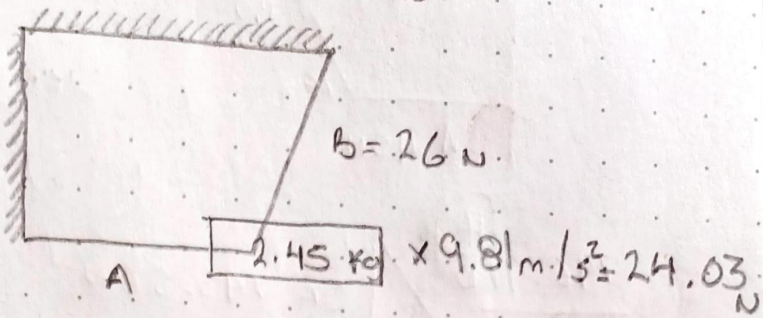 B = 26 N
2.45 kg × 9.81 m/s² = 24.03 N
A